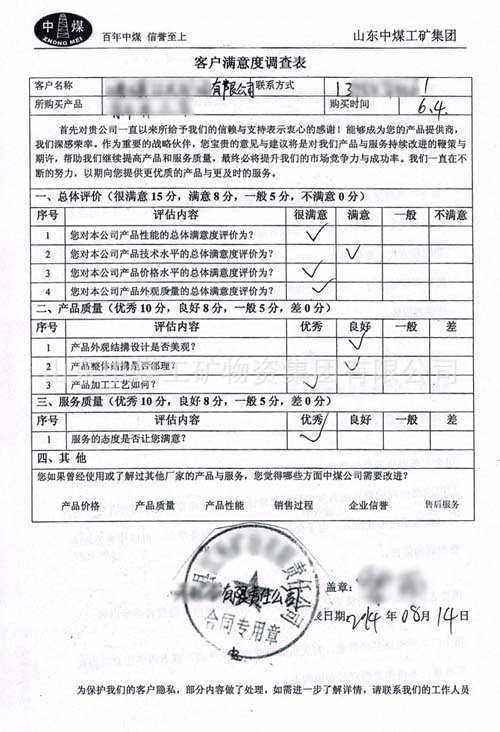 中 煤
ZHONG MEI
百年中煤 信誉至上
山东中煤工矿集团
客户满意度调查表
客户名称 有限公司 联系方式 13
所购买产品 购买时间 6.4.
首先对贵公司一直以来所给予我们的信赖与支持表示衷心的感谢！能够成为您的产品提供商，
我们深感荣幸。作为重要的战略伙伴，您宝贵的意见与建议将是对我们产品与服务持续改进的鞭策与
期许，帮助我们继续提高产品和服务质量，最终必将提升我们的市场竞争力与成功率。我们一直在不
断的努力，以期向您提供更优质的产品与更及时的服务。
一、总体评价（很满意 15 分，满意 8 分，一般 5 分，不满意 0 分）
序号 评估内容 很满意 满意 一般 不满意
1 您对本公司产品性能的总体满意度评价为？ ✓
2 您对本公司产品技术水平的总体满意度评价为？ ✓
3 您对本公司产品价格水平的总体满意度评价为？ ✓
4 您对本公司产品外观质量的总体满意度评价为？ ✓
二、产品质量（优秀 10 分，良好 8 分，一般 5 分，差 0 分）
序号 评估内容 优秀 良好 一般 差
1 产品外观结搆设计是否美观？ ✓
2 产品整体结搆是否合理？ ✓
3 产品加工工艺如何？ ✓
三、服务质量（优秀 10 分，良好 8 分，一般 5 分，差 0 分）
序号 评估内容 优秀 良好 一般 差
1 服务的态度是否让您满意？ ✓
四、其 他
您如果曾经使用或了解过其他厂家的产品与服务，您觉得哪些方面中煤公司需要改进？
产品价格 产品质量 产品性能 销售过程 企业信誉 售后服务
责任公司
有限责任公司
合同专用章
盖章：
日期：2014 年 08 月 14 日
为保护我们的客户隐私，部分内容做了处理，如需进一步了解详情，请联系我们的工作人员